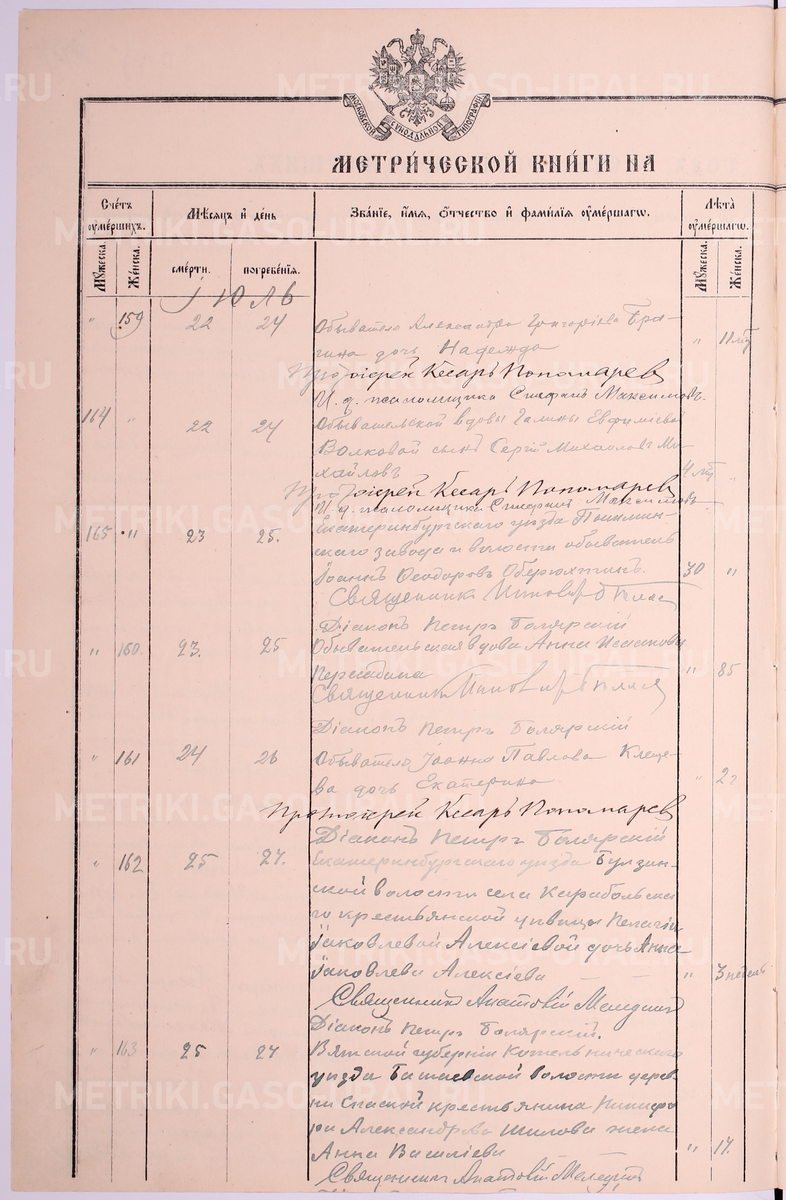 МОСКОВСКОЙ СѴНОДАЛЬНОЙ ТИПОГРАФІИ
МЕТРИ́ЧЕСКОЙ КНИ́ГИ НА
Сче́тъ
оу҆ме́ршихъ.
Мꙋ́жеска.
Же́нска.
Мѣ́сяцъ и҆ де́нь
сме́рти.
погребе́нїя.
Зва́нїе, и҆́мя, ѻ҆́тчество и҆ фами́лїя оу҆ме́ршагѡ.
Лѣта̀
оу҆ме́ршагѡ.
Мꙋ́жеска.
Же́нска.
Іюль
" 159 22 24 Обывателя Александра Григоріева Бра-
гина дочь Надежда " 11
Протоіерей Кесарь Пономарев
И. д. псаломщика Стефанъ Максимовъ.
164 " 22 24 Обывательской вдовы Галины Евфиміевой
Волковой сынъ Сергій Михаиловъ Ми-
хайловъ 4 "
Протоіерей Кесарь Пономарев
И. д. псаломщика Стефанъ Максимовъ
165 " 23 25. Екатеринбургскаго уѣзда
скаго завода и волости обыватель
Іоаннъ Ѳеодоровъ 30 "
Священникъ
Діаконъ Петръ Болярскій
" 160. 23. 25 Обывательская вдова Анна
" 85
Священникъ
Діаконъ Петръ Болярскій
" 161 24 26 Обывателя Іоанна Павлова Клеще-
ва дочь Екатерина " 2
Протоіерей Кесарь Пономарев
Діаконъ Петръ Болярскій
" 162 25 27. Екатеринбургскаго уѣзда Булзин-
ской волости села Карабольска-
го крестьянской дѣвицы Пелагіи
Іаковлевой Алексіевой дочь Анна
Іаковлева Алексіева " 3 недѣль
Священникъ
Діаконъ Петръ Болярскій.
" 163 25 27 Вятской губерніи Котельническаго
уѣзда волости дерев-
ни Спаской крестьянина Никифо-
ра Александрова Шилова жена
Анна Василіева " 17.
Священникъ
METRIKI.GASO-URAL.RU